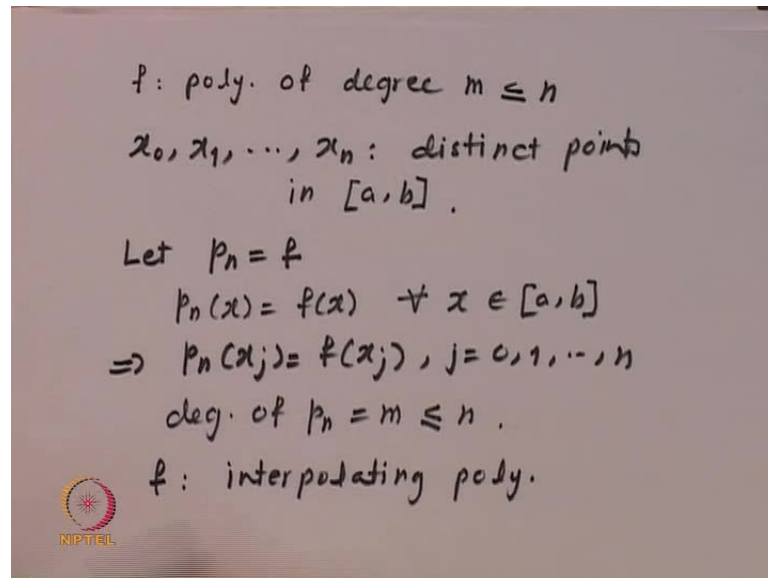 f: poly. of degree m ≤ n
x₀, x₁, ..., xₙ: distinct points
in [a, b].
Let pₙ = f
pₙ(x) = f(x) ∀ x ∈ [a, b]
⇒ pₙ(xⱼ) = f(xⱼ), j = 0, 1, .., n
deg. of pₙ = m ≤ n.
f: interpolating poly.
NPTEL